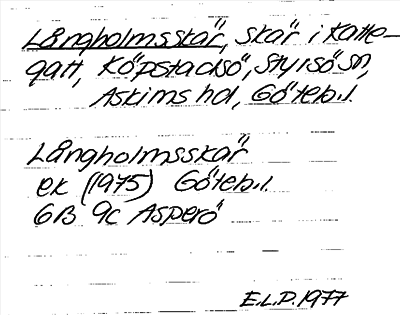 Långholmsskär, skär i Katte-
gatt, Köpstadsö, Styrsö sn,
Askims hd, Göteb.l.
Långholmsskär
ek (1975) Göteb.l.
6B 9c Asperö
E.L.P. 1977